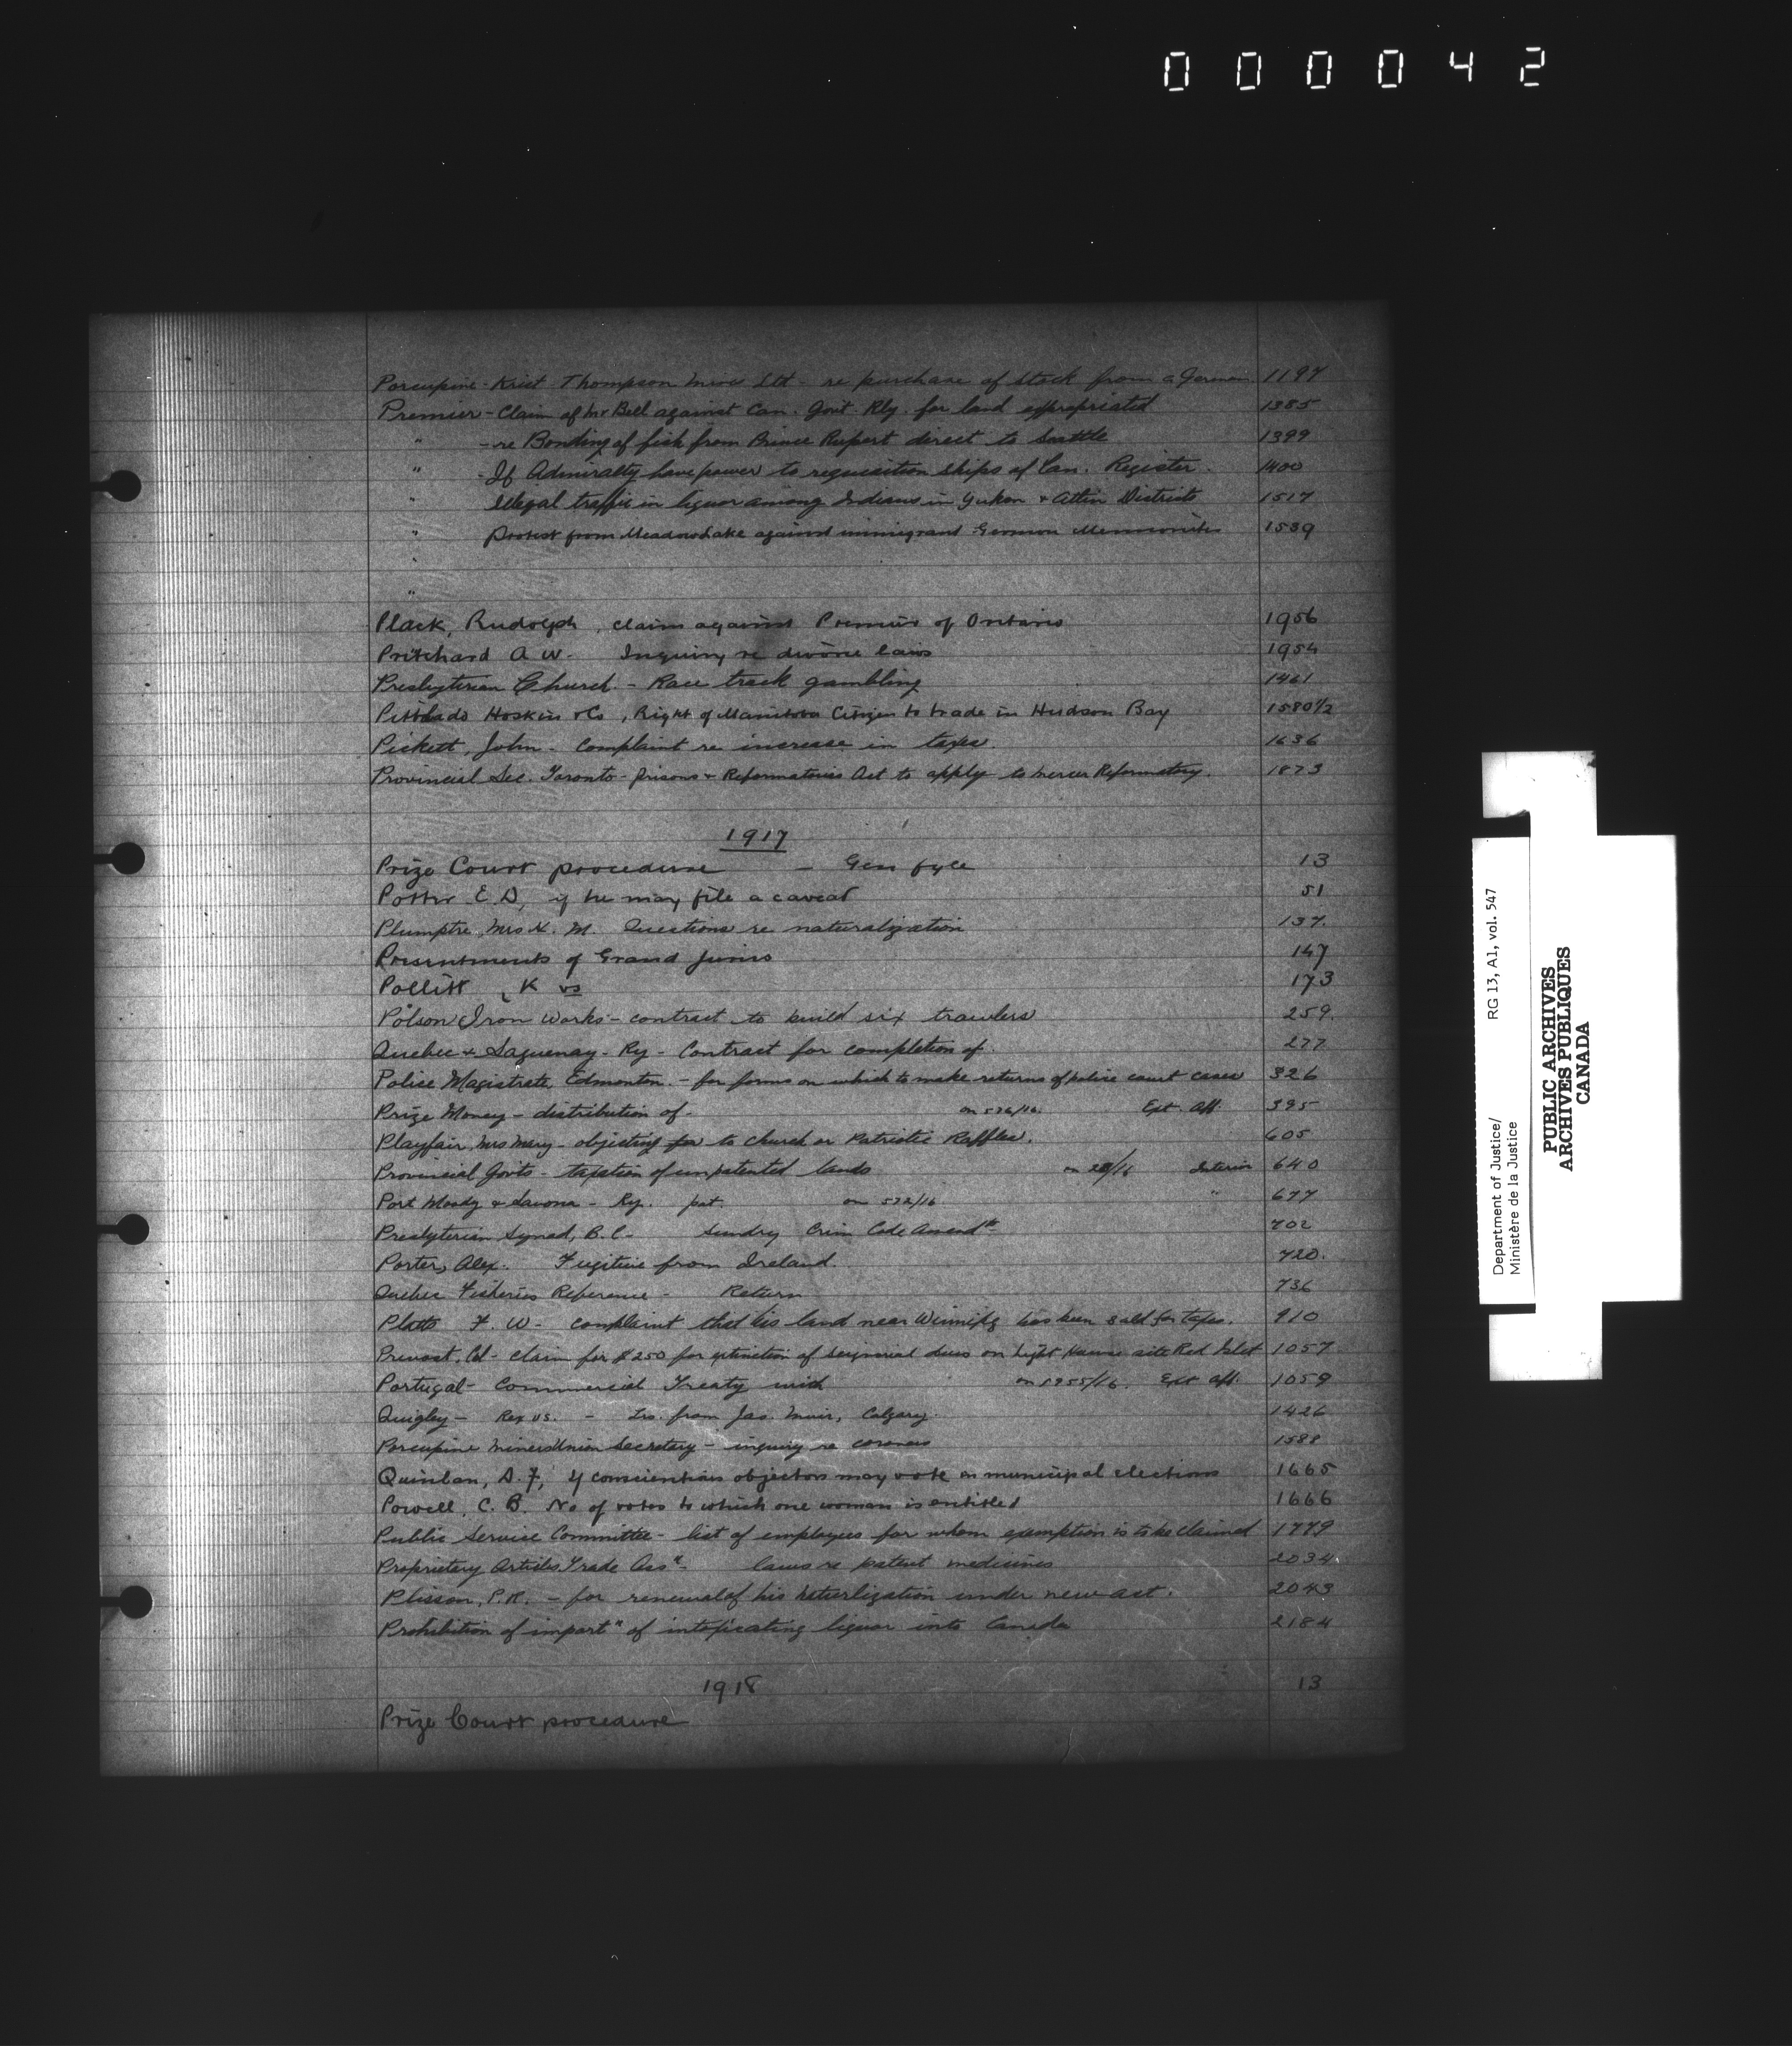 000042
Porcupine - Krist Thompson Mines Ltd - re purchase of stock from a German 1197
Premier - Claim of Mr Bell against Can. Govt. Rly. for land expropriated 1385
" - re Bonding of fish from Prince Rupert direct to Seattle 1399
" - If Admiralty have power to requisition ships of Can. Register. 1400
" Illegal traffic in liquor among Indians in Yukon & Atlin Districts 1517
" protest from Meadow Lake against immigrant German Mennonites 1539
"
"
Plack, Rudolph, claim against Premier of Ontario 1956
Pritchard A W - Inquiry re divorce laws 1954
Presbyterian Church - Race track gambling 1461
Pitblado Hoskin & Co, Right of Manitoba Citizen to trade in Hudson Bay 1580½
Pickett, John - Complaint re increase in taxes. 1636
Provincial Sec. Toronto - Prisons & Reformatories Act to apply to Mercer Reformatory. 1873
1917
Prize Court procedure - Gen fyle 13
Potter E. D, if he may file a caveat 51
Plumptre, Mrs H. M. Questions re naturalization 137.
Presentments of Grand Juries 147
Pollitt, K vs 173
Polson Iron Works - contract to build six trawlers 259.
Quebec & Saguenay - Ry - Contract for completion of. 277
Police Magistrate, Edmonton. - for forms on which to make returns of police court cases 326
Prize Money - distribution of - on 526/16. Ext. Aff. 395
Playfair, Mrs Mary - objecting for to church or Patriotic Raffles. 605
Provincial Govts - taxation of unpatented lands on 28/16 Interior 640
Port Moody & Savona - Ry. pat. on 522/16 " 677
Presbyterian Synod, B.C. - Sundry Crim Code Amendts 702
Porter, Alex. Fugitive from Ireland. 720.
Quebec Fisheries Reference - Return 736
Platts F. W - complaint that his land near Winnipeg has been sold for taxes. 910
Prevost, Col - claim for $250 for extinction of seignorial dues on Light House site Red Islet 1057
Portugal - Commercial Treaty with on 1955/16. Ext aff. 1059
Quigley - Rex vs. - Lrs. from Jas. Muir, Calgary. 1426
Porcupine Miners Union Secretary - inquiry re coroners 1588
Quinlan, D. F, if conscientious objectors may vote in municipal elections 1665
Powell, C. B. No of votes to which one woman is entitled 1666
Public Service Committee - list of employees for whom exemption is to be claimed 1779
Proprietary Articles Trade Assn - laws re patent medicines 2034
Plisson, P.R. - for renewal of his naturlization under new act. 2043
Prohibition of importn of intoxicating liquor into Canada 2184
1918
Prize Court procedure 13
Department of Justice/
Ministère de la Justice
RG 13, A1, vol. 547
PUBLIC ARCHIVES
ARCHIVES PUBLIQUES
CANADA